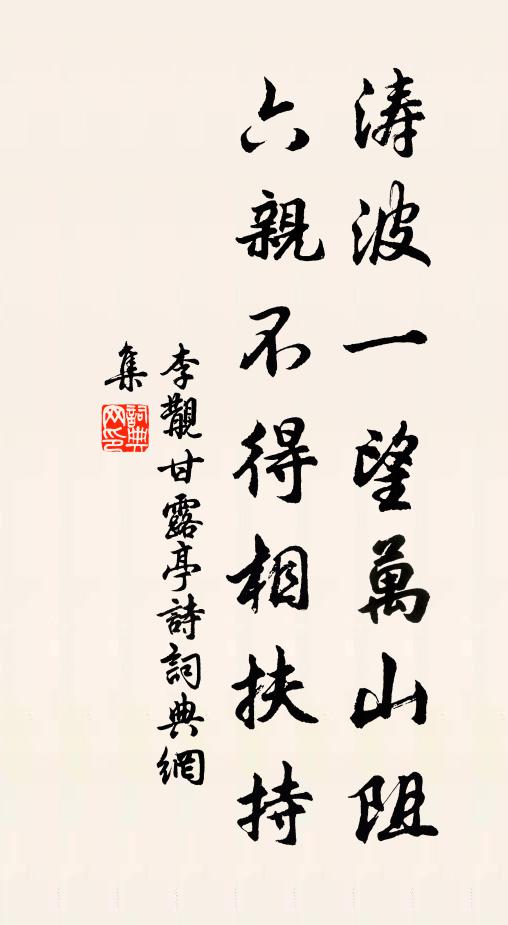 涛波一望萬山阻
六親不得相扶持
李覯甘露亭詩詞典網
集
詞典網印